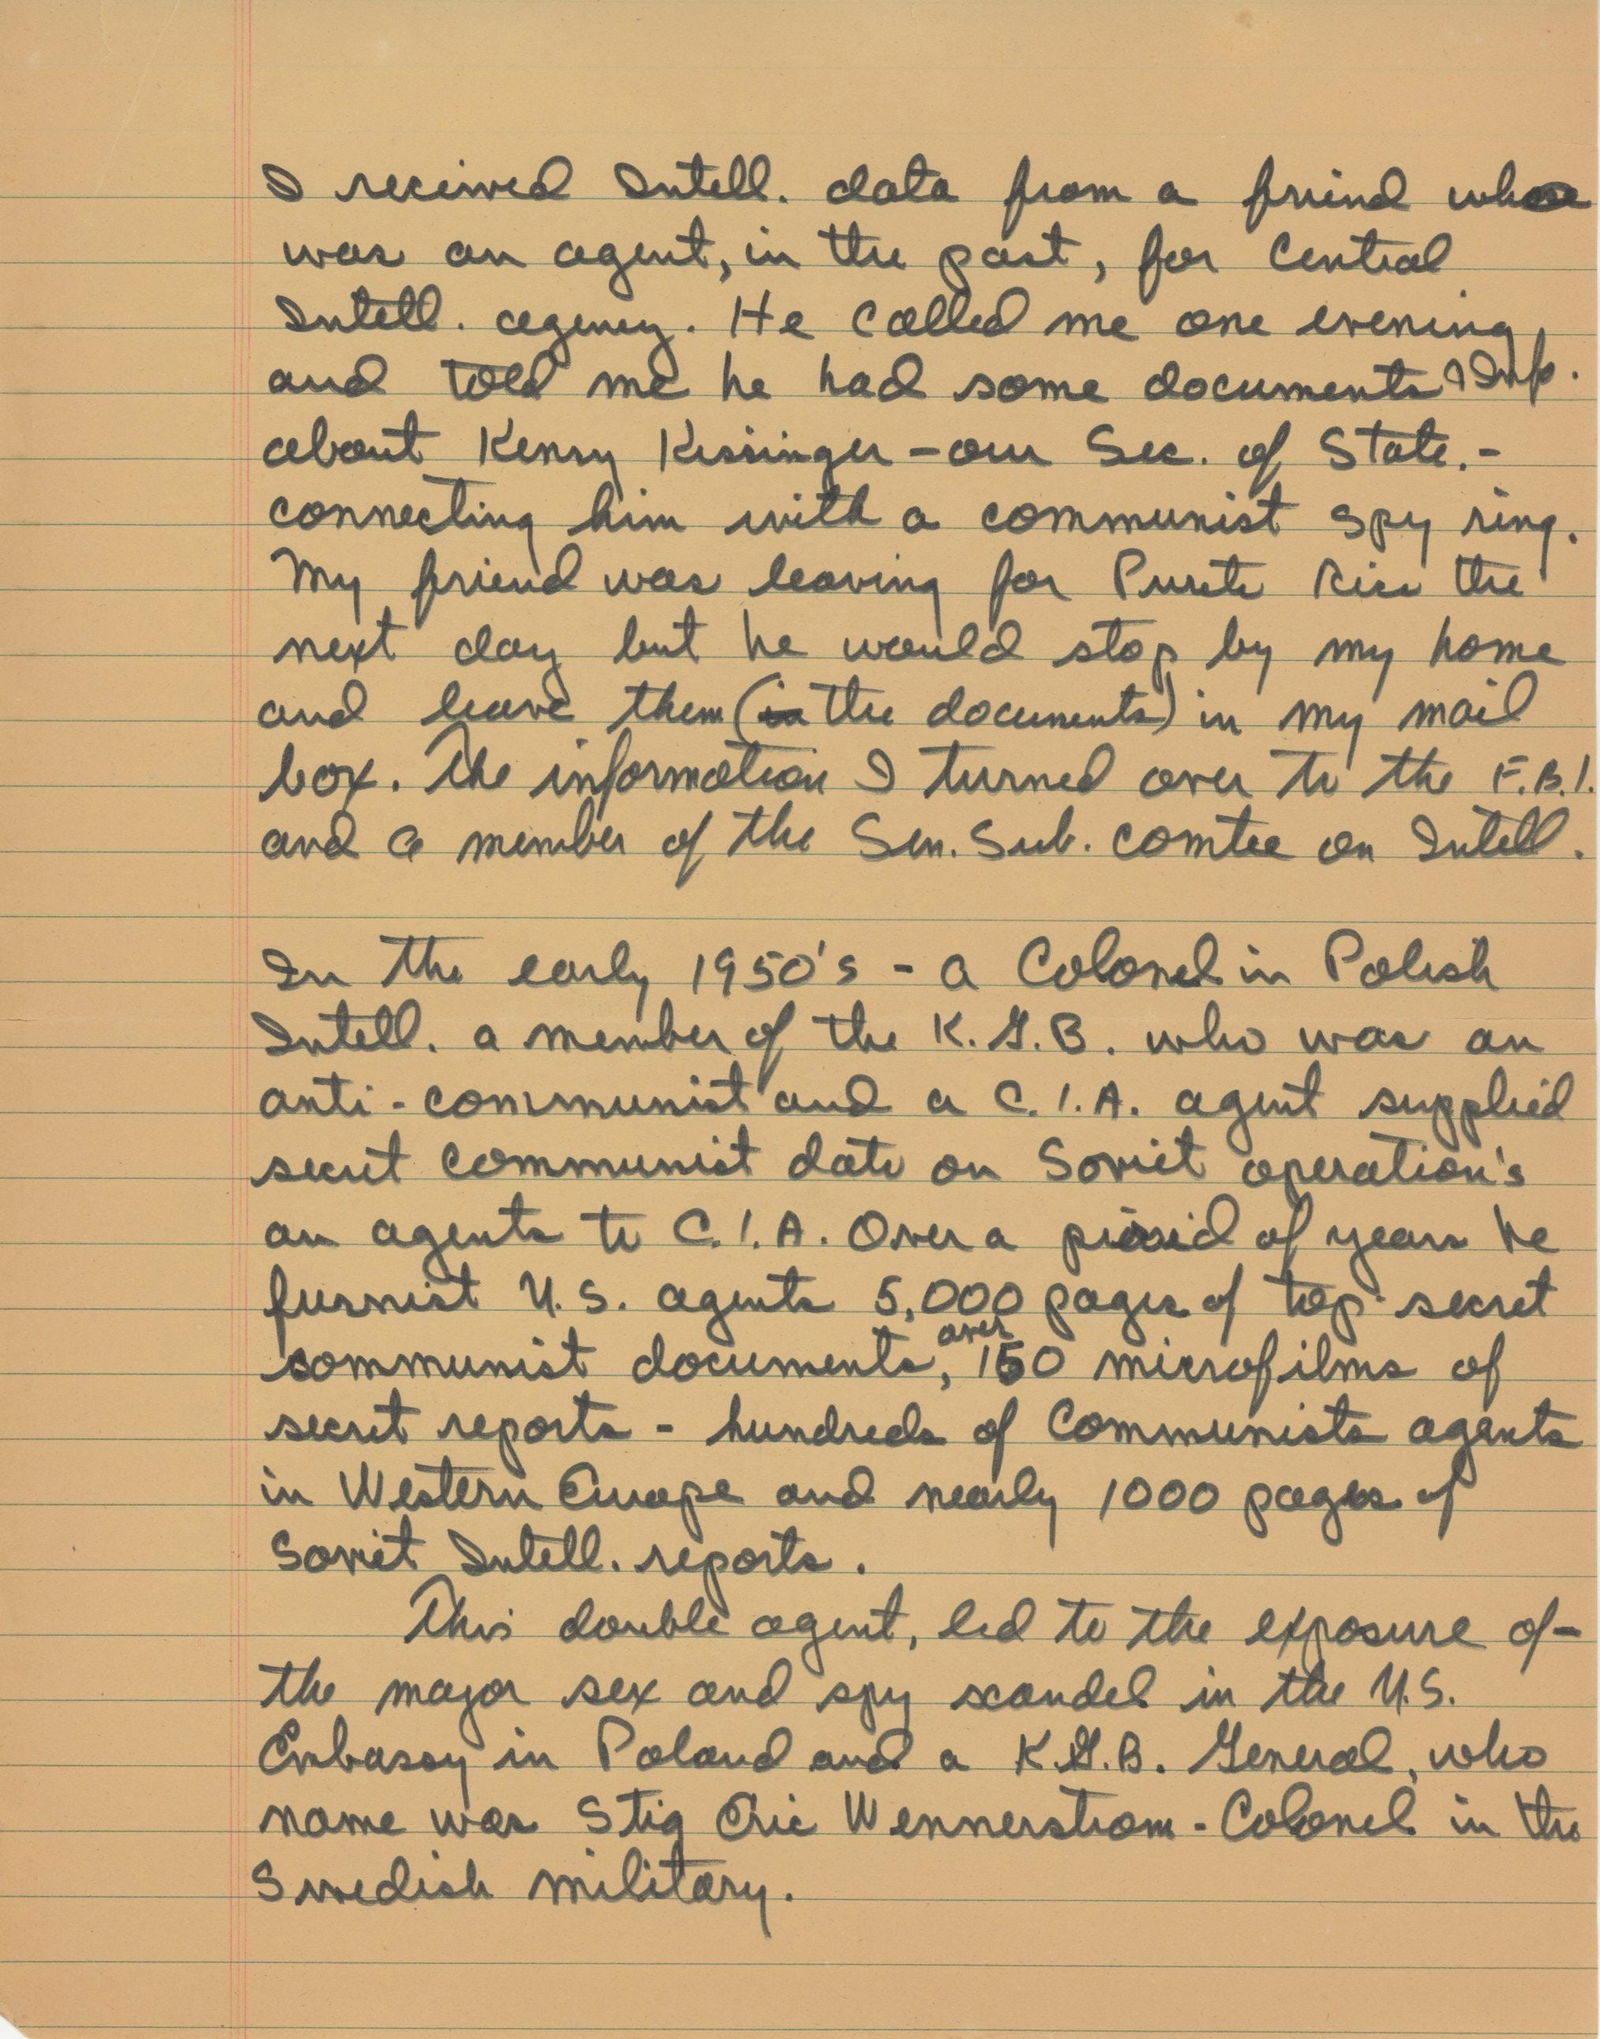 I received Intell. data from a friend who
was an agent, in the past, for Central
Intell. agency. He called me one evening
and told me he had some documents & Inf.
about Kenry Kissinger - our Sec. of State. -
connecting him with a communist spy ring.
My friend was leaving for Pureto Rico the
next day but he would stop by my home
and leave them (the documents) in my mail
box. The information I turned over to the F.B.I.
and a member of the Sen. Sub. comtee on Intell.
In the early 1950's - a Colonel in Polish
Intell. a member of the K.G.B. who was an
anti-communist and a C.I.A. agent supplied
secret communist data on Soviet operation's
an agents to C.I.A. Over a of years he
furnist U.S. agents 5,000 pages of top-secret
communist documents, over 150 microfilms of
secret reports - hundreds of Communists agents
in Western Europe and nearly 1000 pages of
Soviet Intell. reports.
This double agent, led to the exposure of -
the major sex and spy scandel in the U.S.
Embassy in Poland and a K.G.B. General, who
name was Stig Eric Wennerstrom - Colonel in the
Swedish military.